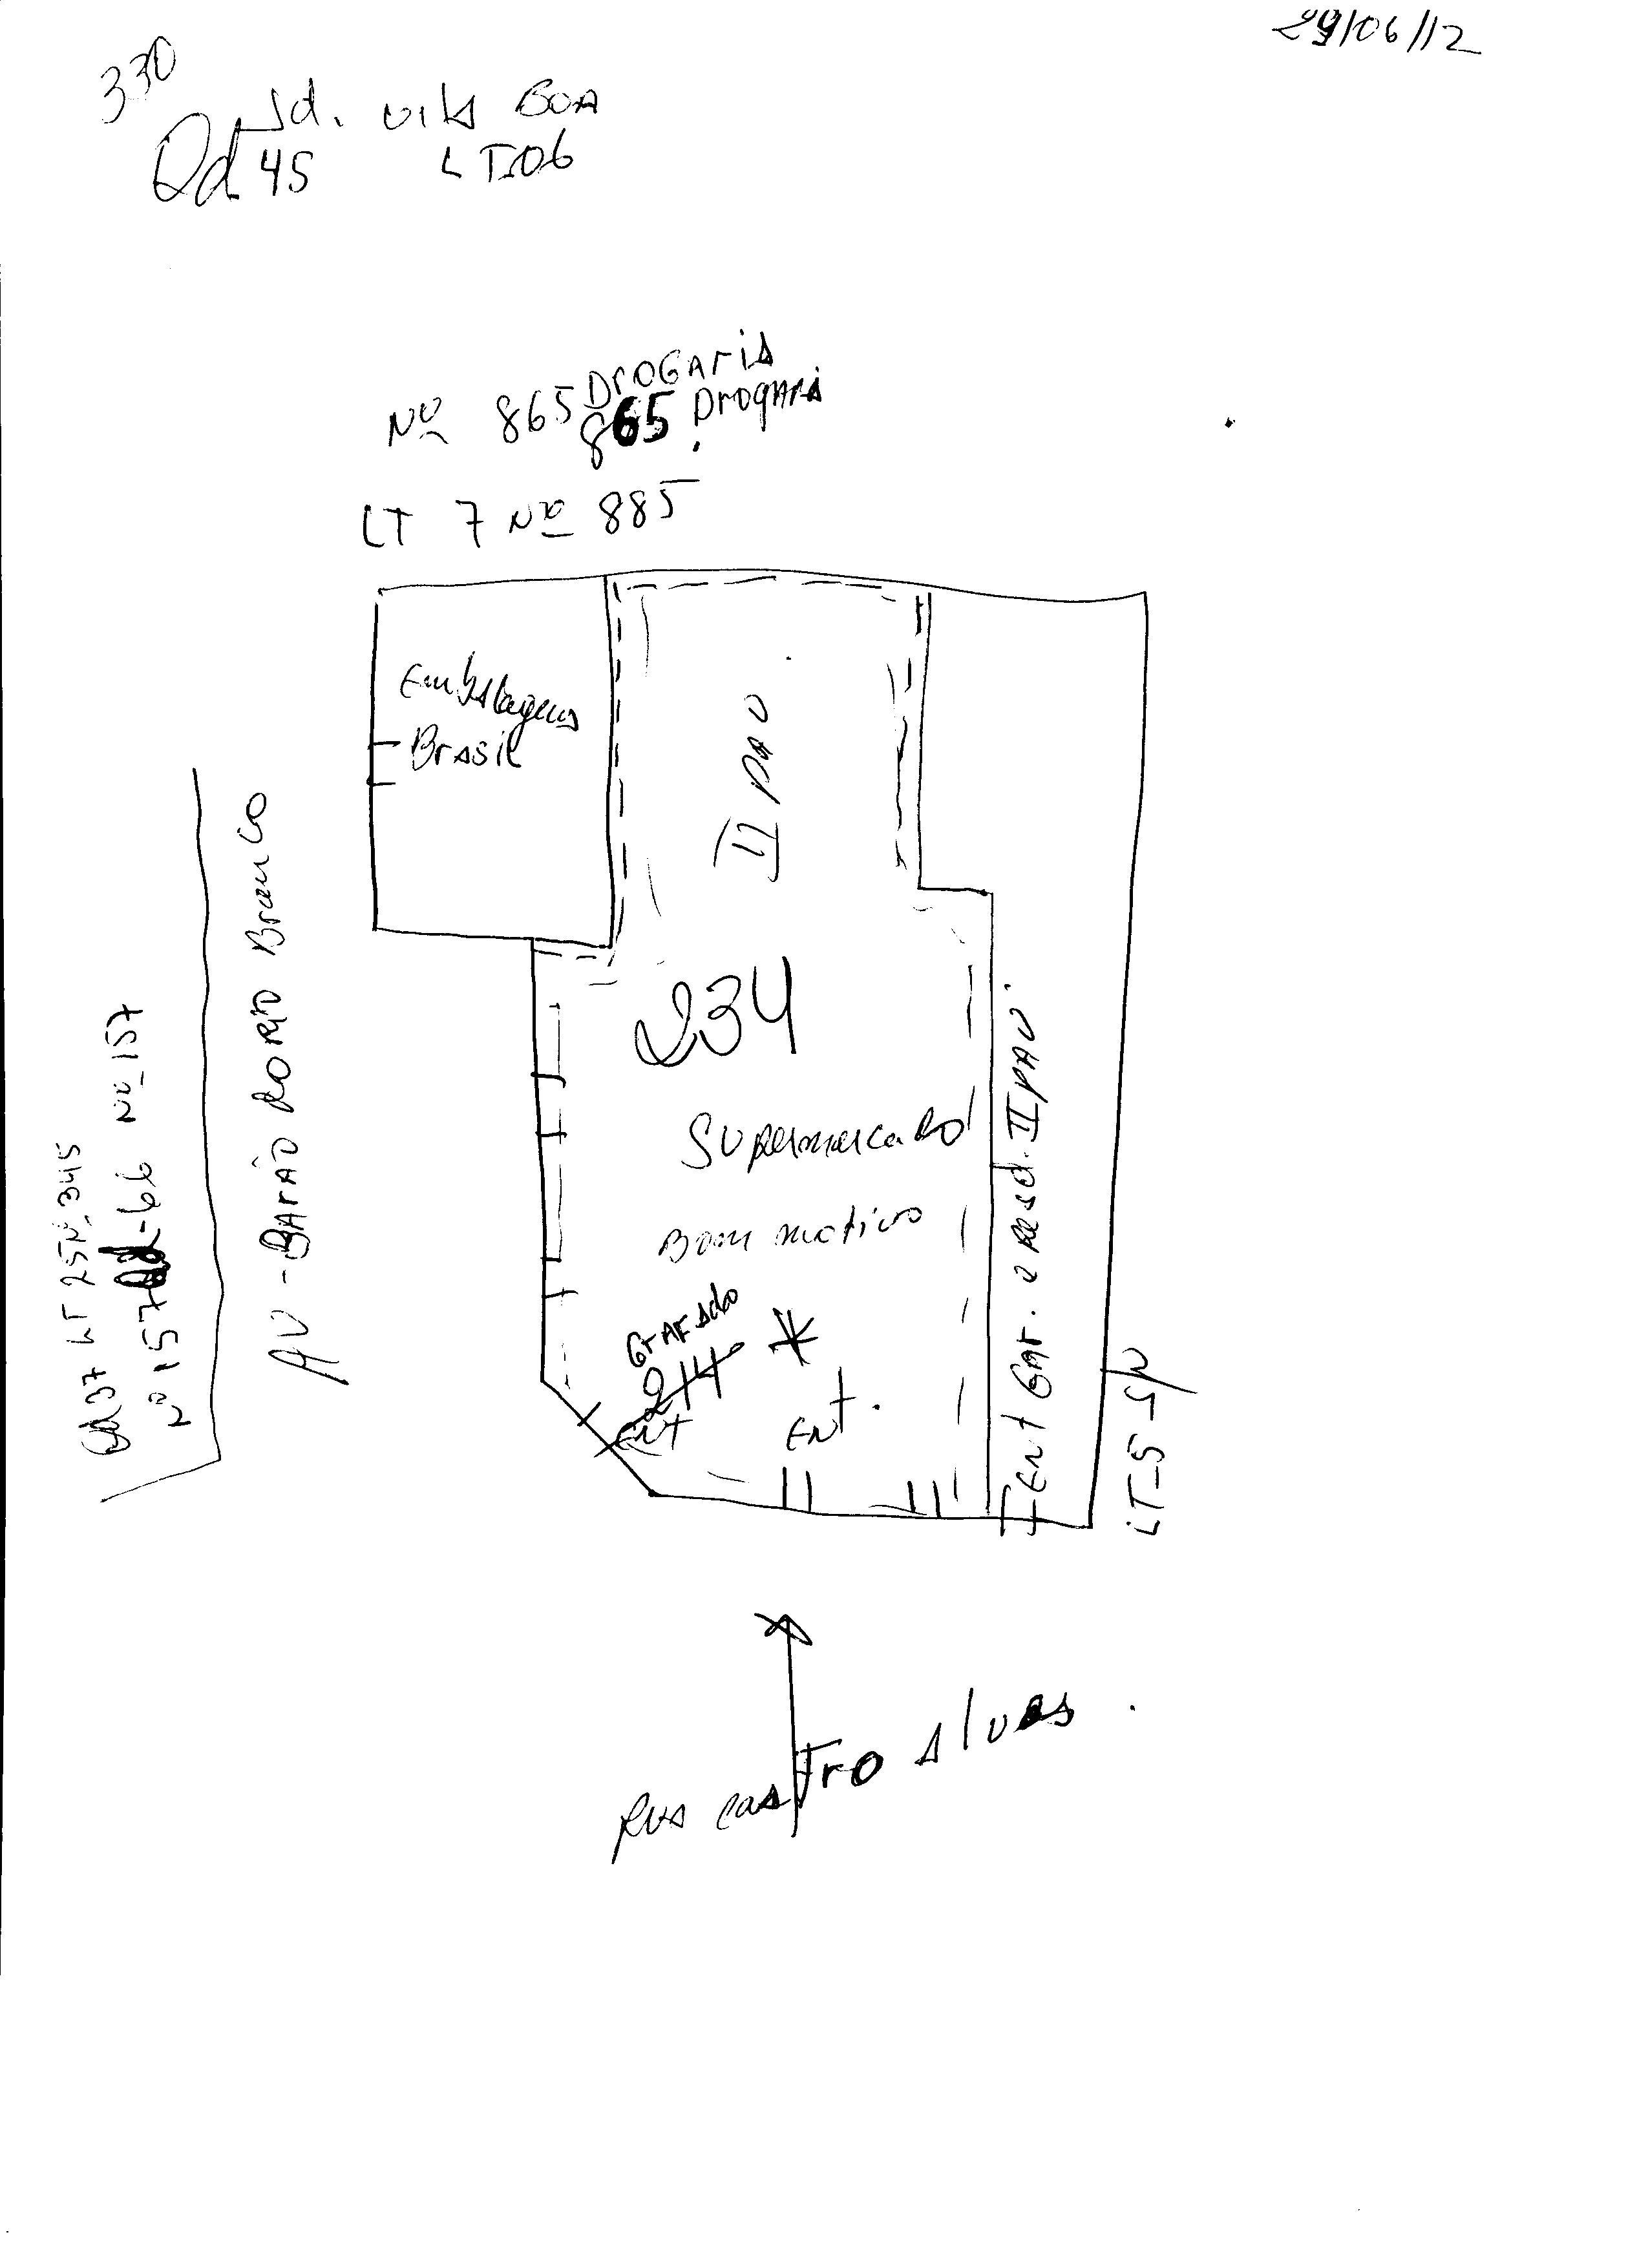 29/06/12
330
Jd. vila BOA
Qd 45 LT06
Nº 865 DrOGAriA
865 Drogari
LT 7 Nº 885
Embalagens
Brasil
II PAV.
AV - BArÃO do rio Branco
Qd 37 LT 25 Nº 345
Nº 157 Nº 157
234
Supermercado
Bom motivo
GrAFAdo
214
ENT
ENT.
Ent Gar. e Resd. II PAV.
LT-5 S/N
Rua casTro Alves